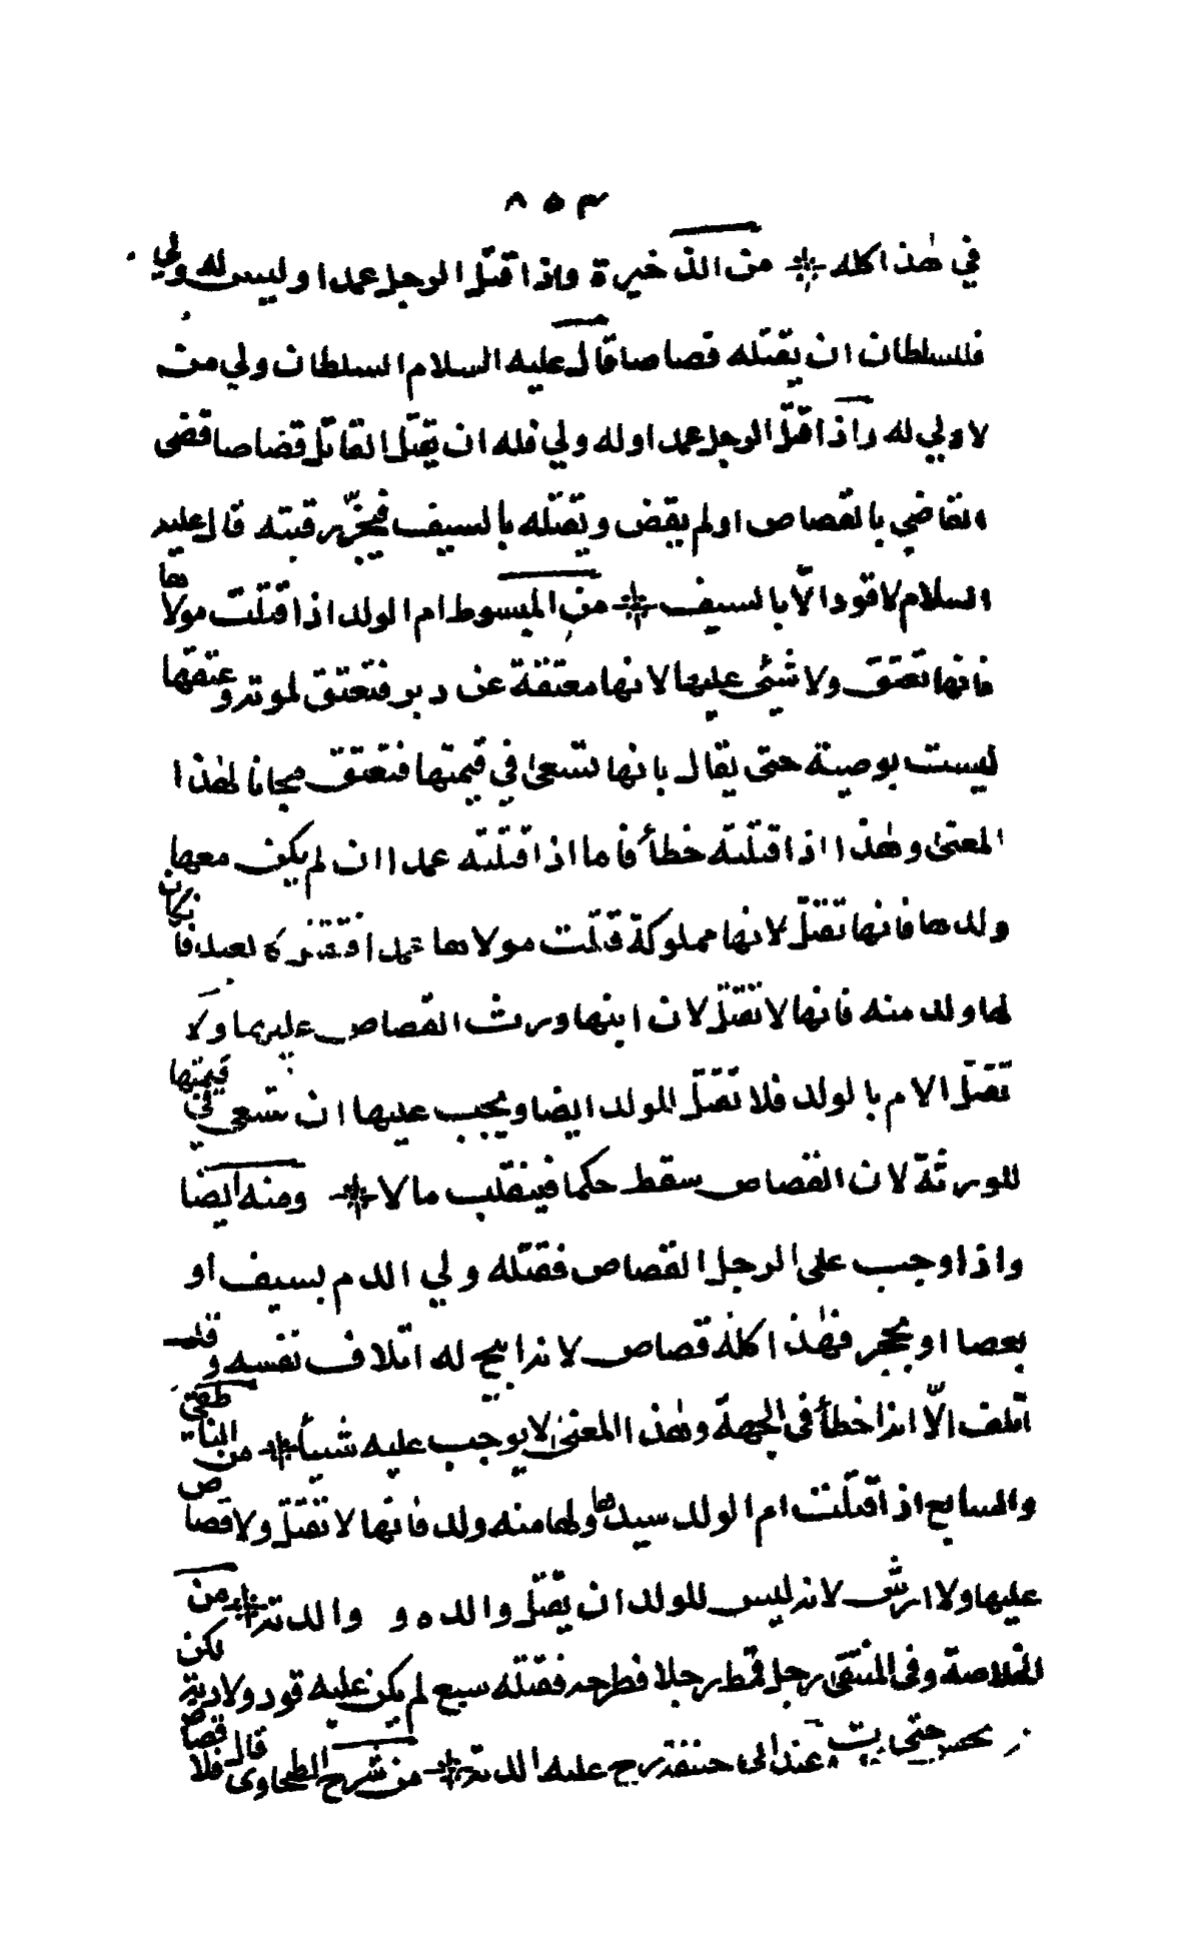 ٨٥٣
في هٰذا كله ❊ من الذخيرة واذا قتل الرجل عمدا وليس له ولي
فللسلطان ان يقتله قصاصا قال عليه السلام السلطان ولي من
لا ولي له واذا قتل الرجل عمدا وله ولي فله ان يقتل القاتل قصاصا قضى
القاضي بالقصاص او لم يقض ويقتله بالسيف فيحزّ رقبته قال عليه
السلام لا قود الّا بالسيف ❊ من المبسوط ام الولد اذا قتلت مولاها
فانها تعتق ولا شئي عليها لانها معتقة عن دبر فتعتق لموته وعتقها
ليست بوصية حتى يقال بانها تسعىٰ في قيمتها فتعتق مجانا لهٰذا
المعنىٰ وهٰذا اذا قتلته خطأ فاما اذا قتلته عمدا ان لم يكن معها
ولدها فانها تقتل لانها مملوكة قتلت مولاها عمدا لعبد فان كان
لها ولد منه فانها لا تقتل لان ابنها ورث القصاص عليها ولا
تقتل الام بالولد فلا تقتل المولد ايضا ويجب عليها ان تسعى في قيمتها
للورثة لان القصاص سقط حكما فينقلب مالا ❊ ومنه ايضا
واذا وجب على الرجل القصاص فقتله ولي الدم بسيف او
بعصا او بحجر فهٰذا كله قصاص لانه ابيح له اتلاف نفسه وقد
اتلف الّا انه اخطأ في الجهة وهٰذا المعنىٰ لا يوجب عليه شيأ ❊ من
والسابع اذا قتلت ام الولد سيدها ولها منه ولد فانها لا تقتل ولا قصاص
عليها ولا ارش لانه ليس للولد ان يقتل والده و والدته ❊ من
الخلاصة وفي المنتقىٰ رجل قمط رجلا فطرحه فقتله سبع لم يكن عليه قود ولا دية
عند ابي حنيفة رح عليه الدية ❊ من شرح الطحاوى قال فلا قصاص